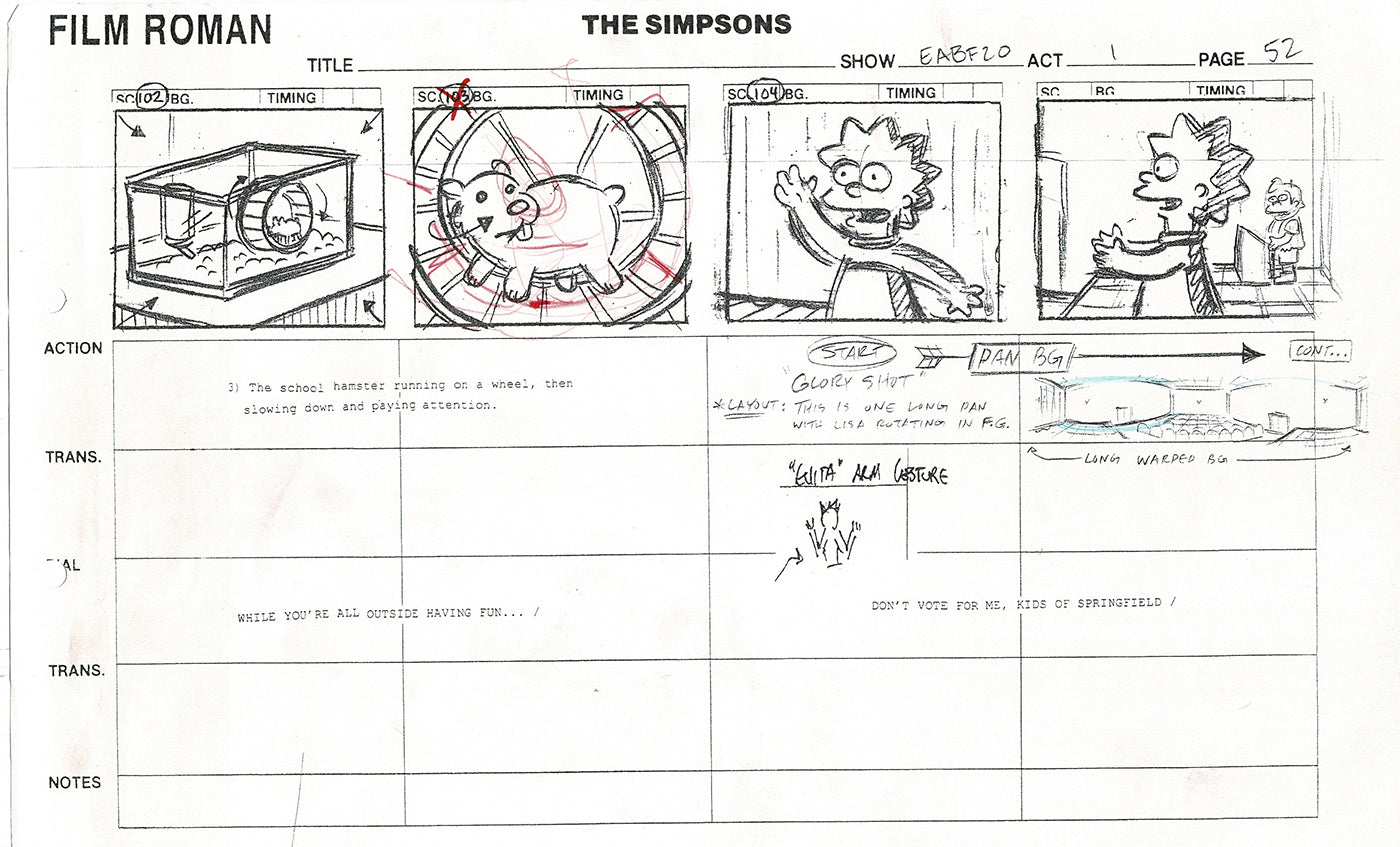 FILM ROMAN
THE SIMPSONS
TITLE SHOW EABF20 ACT 1 PAGE 52
SC. 102 BG. TIMING
SC. 103 BG. TIMING
SC. 104 BG. TIMING
SC BG TIMING
ACTION
3) The school hamster running on a wheel, then
slowing down and paying attention.
START PAN BG CONT...
"GLORY SHOT"
*LAYOUT: THIS IS ONE LONG PAN
WITH LISA ROTATING IN F.G.
LONG WARPED BG
TRANS.
"EVITA" ARM GESTURE
AL
WHILE YOU'RE ALL OUTSIDE HAVING FUN... /
DON'T VOTE FOR ME, KIDS OF SPRINGFIELD /
TRANS.
NOTES